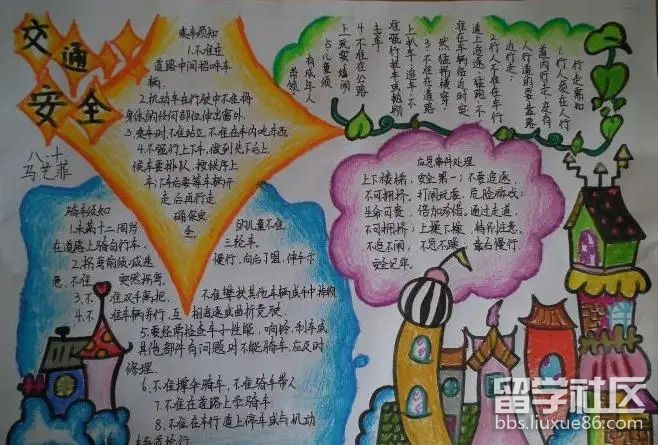 交通
安全
八、十
乘车须知
1.不准在
道路中间招呼车
辆.
2.机动车在行驶中不准将
身体的任何部位伸出窗外.
3.乘车时不准站立,不准在车内吃东西
4.不强行上下车,做到先下后上,
候车要排队,按秩序上
车;下车后要等车辆开
走后再行走
确保安
全.
行走需知
1.行人须在人行
道内行走,没有
人行道的要靠路
边行走.
2.行人不准在车行
道上追逐、猛跑,不
准在车辆临近时突
然猛拐横穿.
3.不准在道路
上扒车、追车,不
准强行拦车或抛物
击车.
4.不准在公路
上玩耍嬉闹
5.儿童须
有成年人
带领.
应急事件处理
上下楼梯,安全第一;不要追逐,
不可拥挤,打闹玩耍,危险游戏;
生命可贵,倍加珍惜。通过走道,
不可拥挤;上操下操,特别注意.
不追不闹,不急不躁;靠右慢行,
安全记牢.
骑车须知
1.未满十二周岁
在道路上骑自行车,
的儿童不准
三轮车.
2.拐弯前须减速
慢行,向后了望,伸手示
意,不准突然拐弯.
3.不准双手离把,不准攀扶其他车辆或手中持物
4.不准车辆并行,互相追逐或曲折竞驶.
5.要经常检查车子性能,响铃,制车或
其他部件有问题时不能骑车,应及时
修理.
6.不准撑伞骑车,不准骑车带人
7.不准在道路上学骑车
8.不准在车行道上停车或与机动
车争道抢行
留学社区
bbs.liuxue86.com